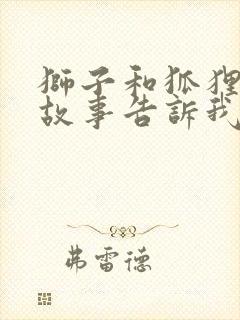 獅子和狐狸
故事告訴我
弗雷德